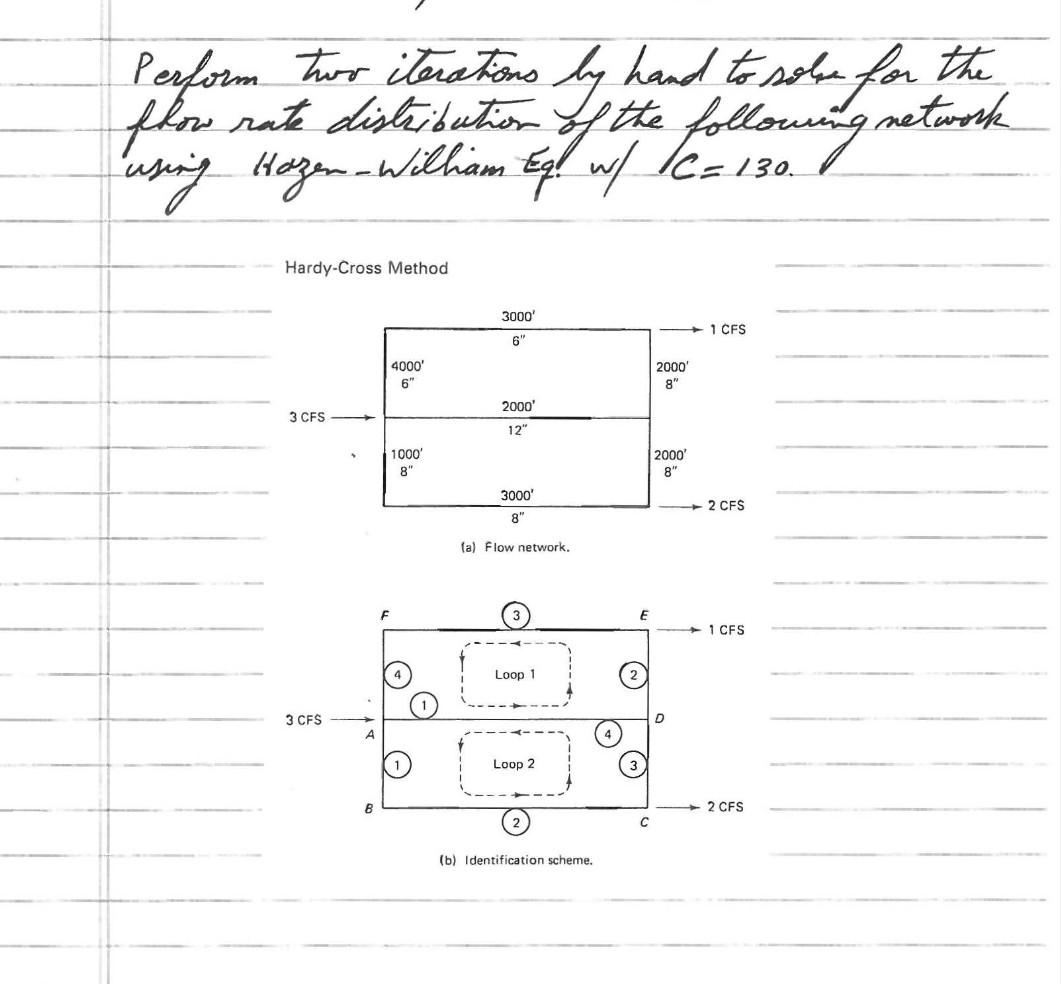 Perform two iterations by hand to solve for the
flow rate distribution of the following network
using Hazen-William Eq. w/ C = 130.
Hardy-Cross Method
3000'
6"
1 CFS
4000'
6"
2000'
8"
3 CFS
2000'
12"
1000'
8"
2000'
8"
3000'
8"
2 CFS
(a) Flow network.
F
3
E
1 CFS
4
Loop 1
2
1
3 CFS
A
D
4
1
Loop 2
3
B
2
C
2 CFS
(b) Identification scheme.